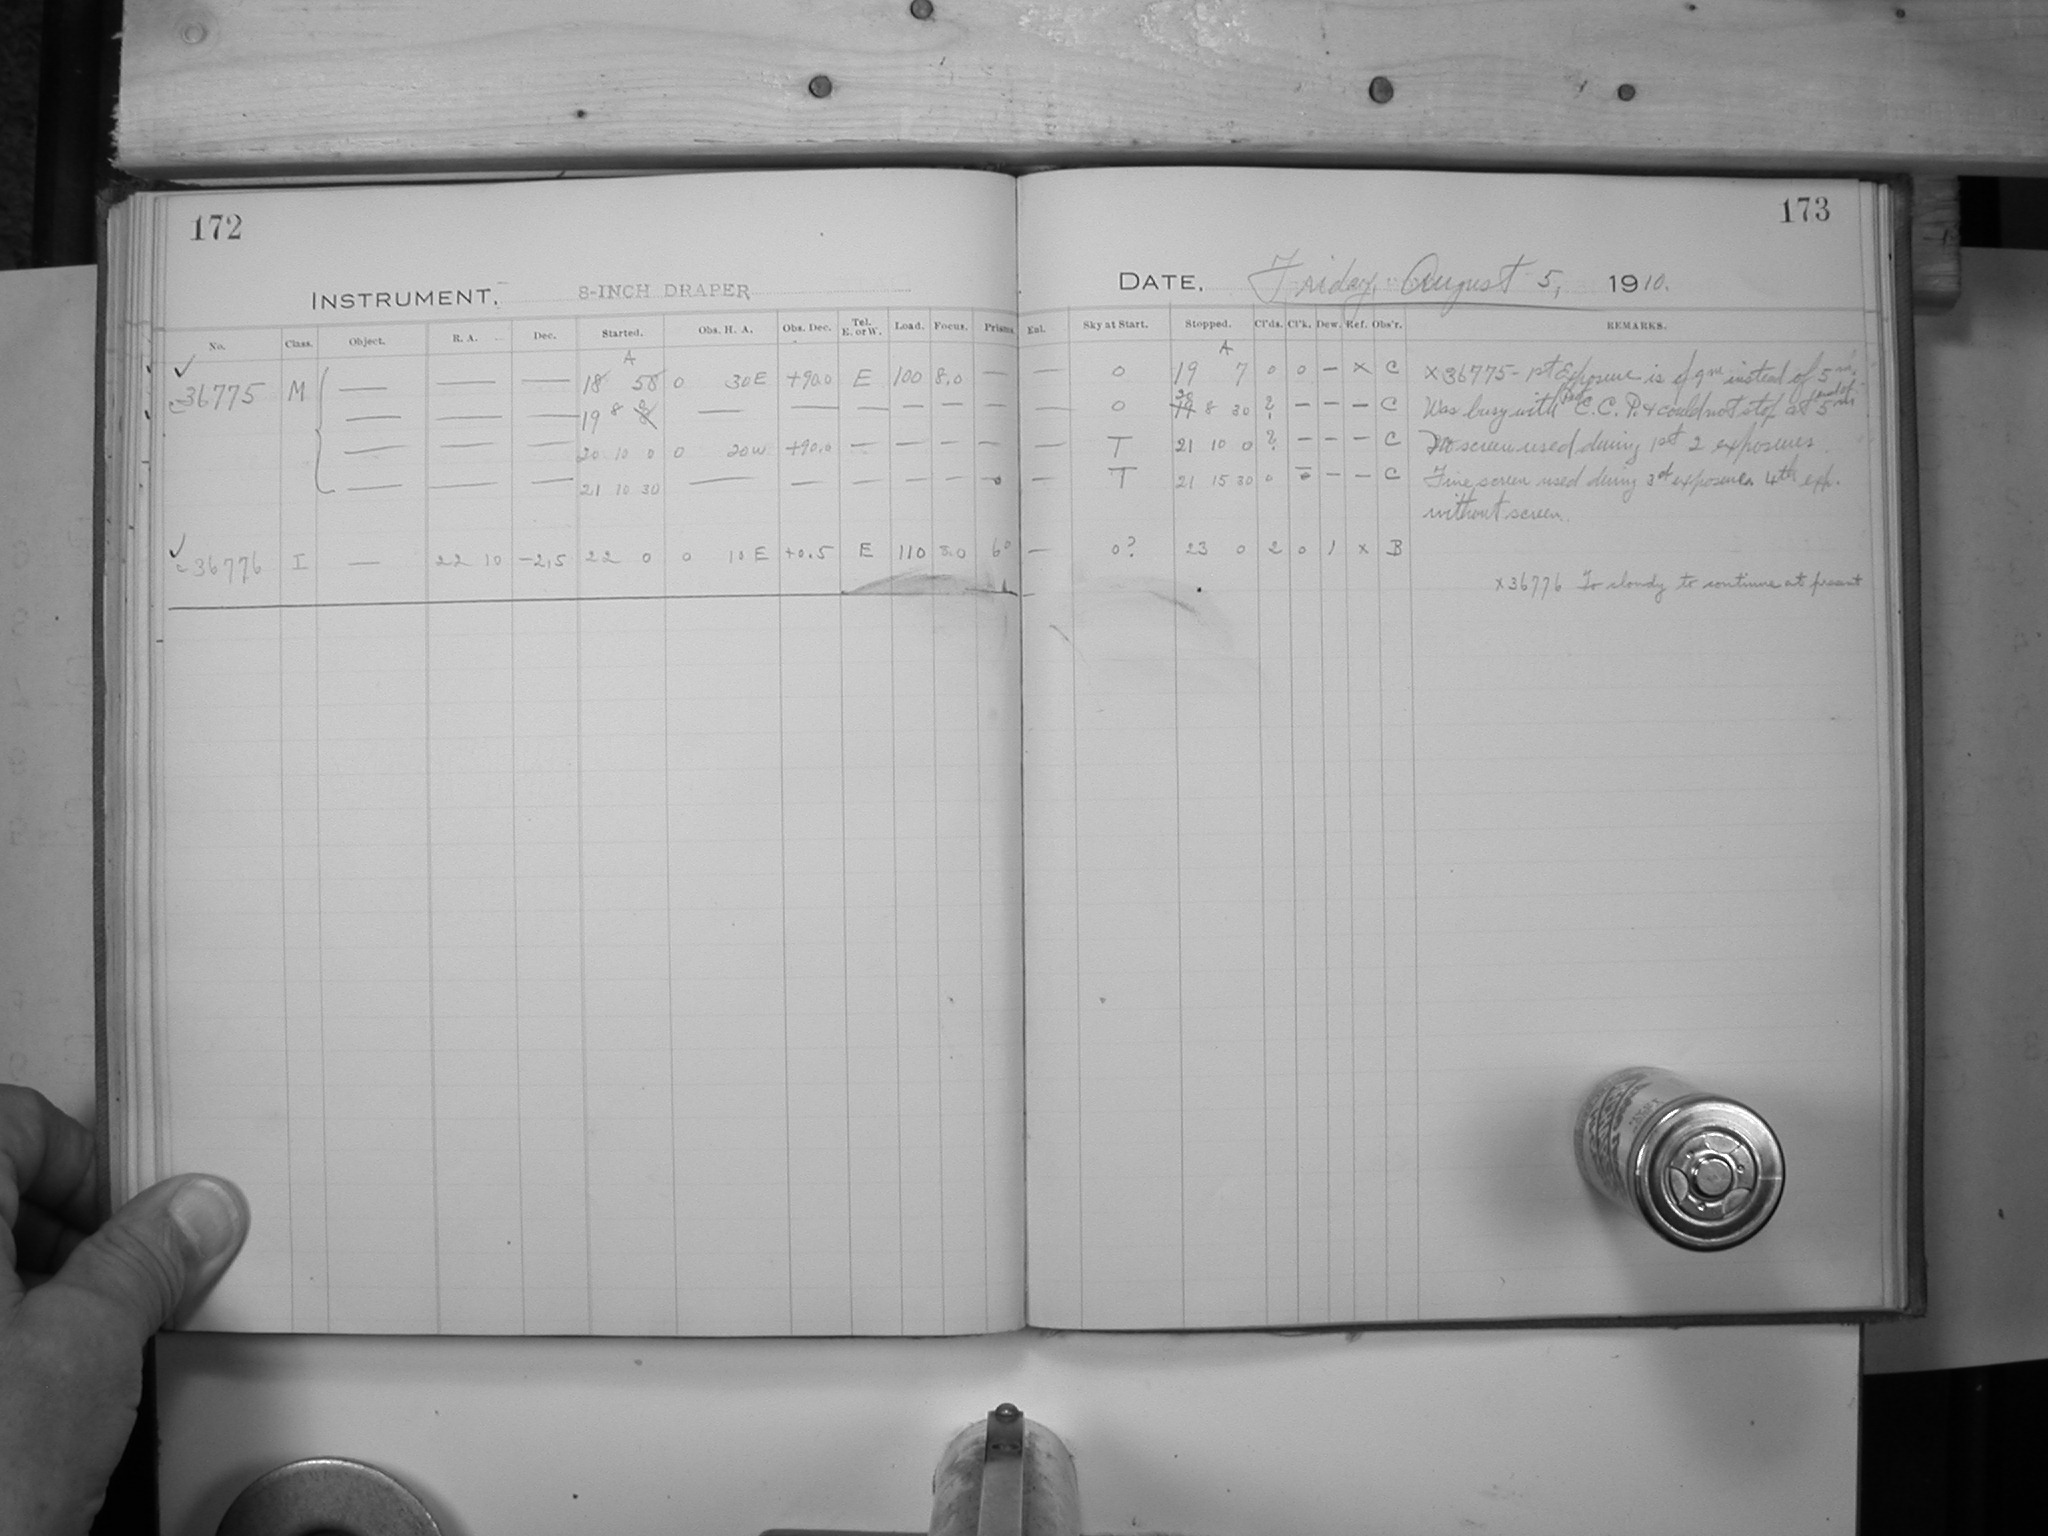 172
INSTRUMENT, 8-INCH DRAPER
No. Class. Object. R. A. Dec. Started. Obs. H. A. Obs. Dec. Tel. E. or W. Load. Focus. Prisms.
A
36775 M — — — 18 58 0 30 E +90.0 E 100 8.0 —
— — — 19 8 — — — — — —
— — — 20 10 0 0 20 W +90.0 — — — —
— — — 21 10 30 — — — — —
36776 I — 22 10 -2.5 22 0 0 10 E +0.5 E 110 8.0 6
173
DATE, Friday, August 5, 1910.
Enl. Sky at Start. Stopped. Cl'ds. Cl'k. Dew. Ref. Obs'r. REMARKS.
A
— 0 19 7 0 0 — x C x 36775 - 1st Exposure is of 9m instead of 5m.
— 0 20 8 30 ? — — — C Was busy with C. C. P. & could not stop at end of 5m
— T 21 10 0 ? — — — C No screen used during 1st 2 exposures.
— T 21 15 30 0 — — C Fine screen used during 3d exposure. 4th exp.
without screen.
— 0? 23 0 2 0 1 x B
x 36776 To cloudy to continue at present